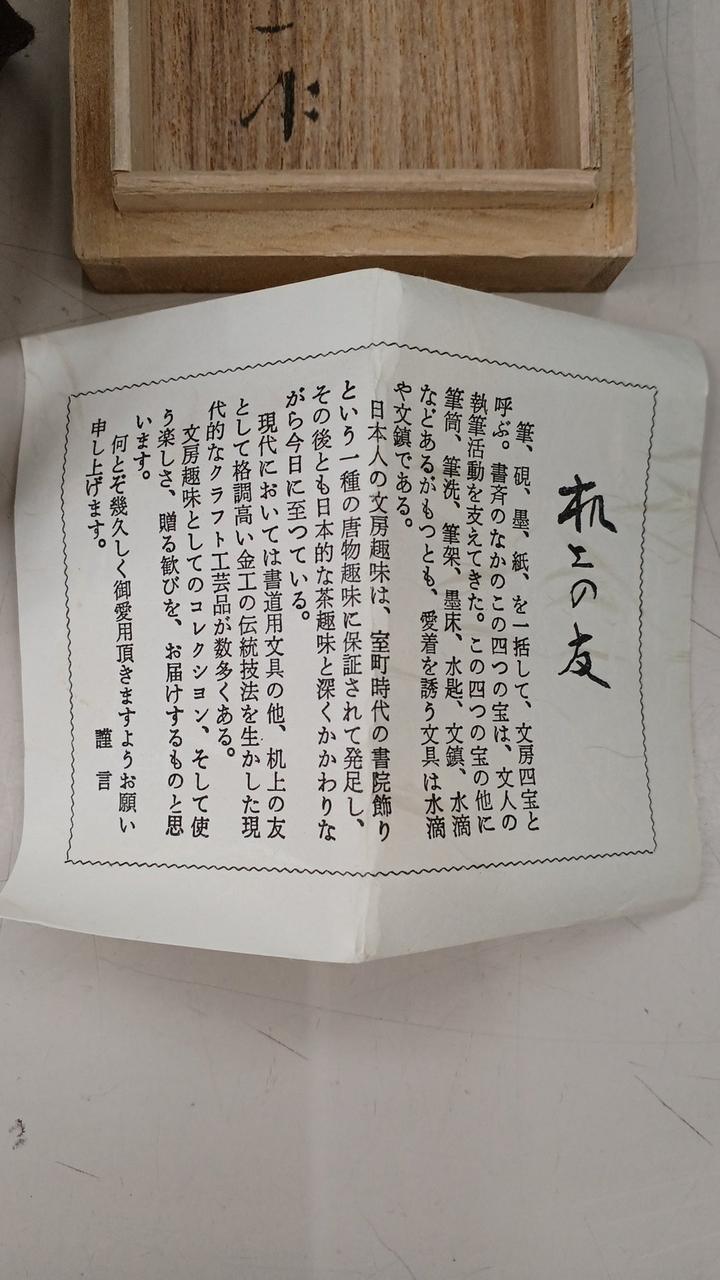 机上の友
筆、硯、墨、紙、を一括して、文房四宝と
呼ぶ。書斉のなかのこの四つの宝は、文人の
執筆活動を支えてきた。この四つの宝の他に
筆筒、筆洗、筆架、墨床、水匙、文鎮、水滴
などあるがもつとも、愛着を誘う文具は水滴
や文鎮である。
日本人の文房趣味は、室町時代の書院飾り
という一種の唐物趣味に保証されて発足し、
その後とも日本的な茶趣味と深くかかわりな
がら今日に至つている。
現代においては書道用文具の他、机上の友
として格調高い金工の伝統技法を生かした現
代的なクラフト工芸品が数多くある。
文房趣味としてのコレクション、そして使
う楽しさ、贈る歓びを、お届けするものと思
います。
何とぞ幾久しく御愛用頂きますようお願い
申し上げます。
謹言